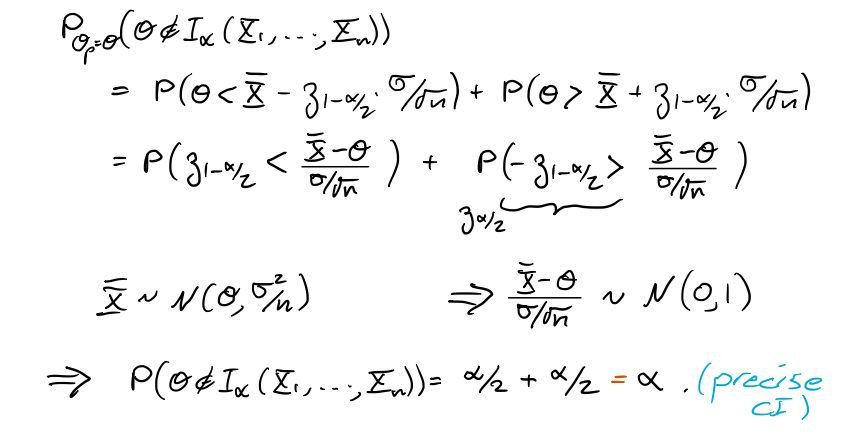 P_{θ_P=θ}(θ ∉ I_α(X₁, ..., Xₙ))
= P(θ < X̄ − z_{1−α/2} · σ/√n) + P(θ > X̄ + z_{1−α/2} · σ/√n)
= P(z_{1−α/2} < (X̄−θ)/(σ/√n)) + P(−z_{1−α/2} > (X̄−θ)/(σ/√n))
z_{α/2}
X̄ ~ N(θ, σ²/n) ⇒ (X̄−θ)/(σ/√n) ~ N(0,1)
⇒ P(θ ∉ I_α(X₁, ..., Xₙ)) = α/2 + α/2 = α . (precise
CI)